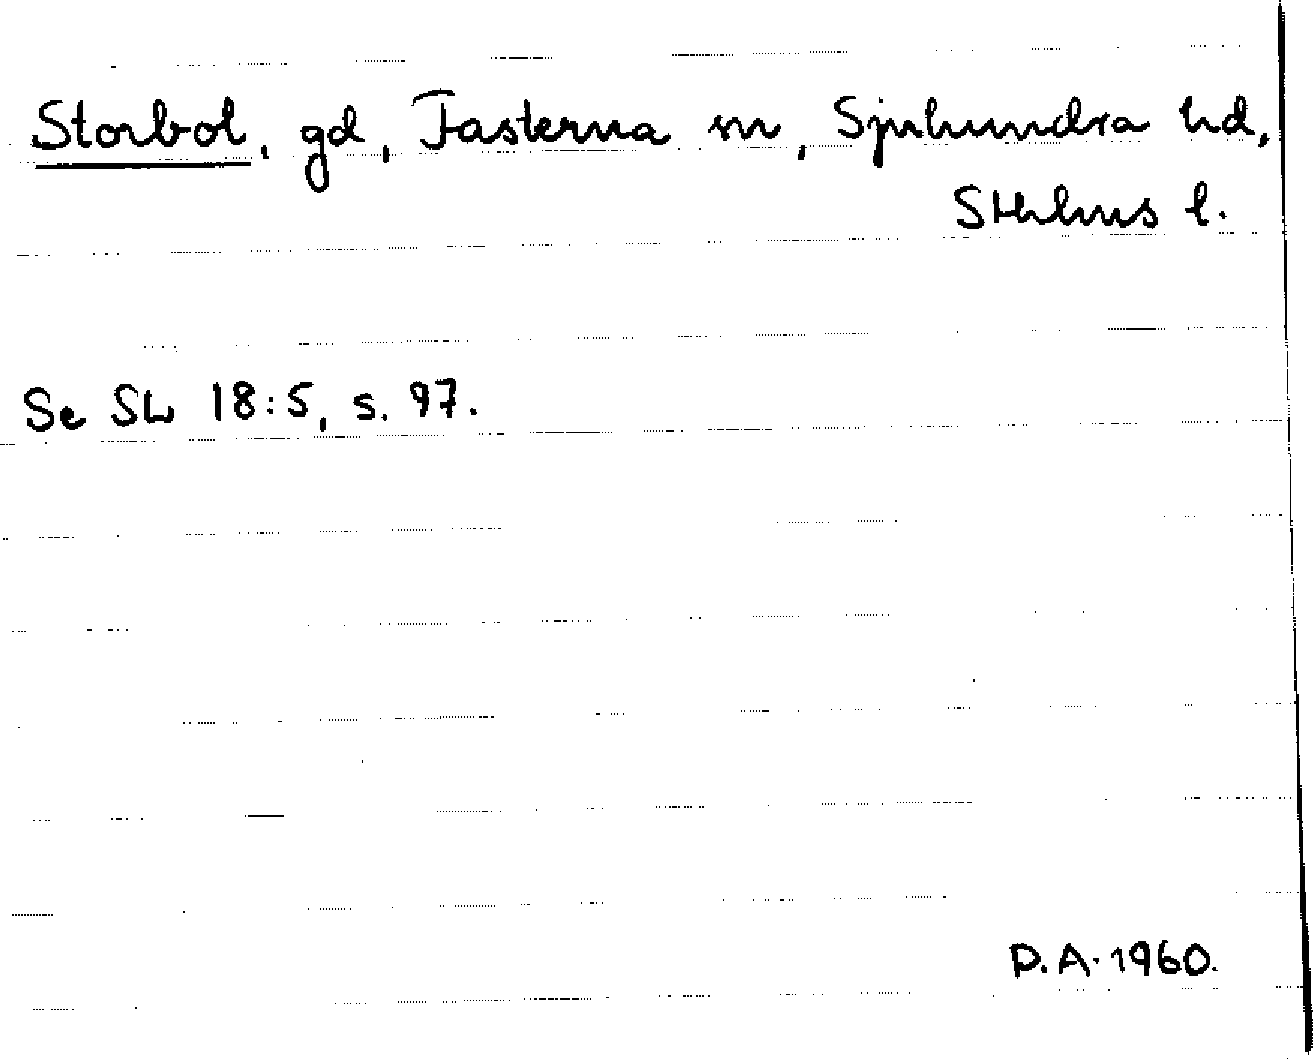 Storbol, gd, Fasterna sn, Sjuhundra hd,
Sthlms l.
Se SL 18:5, s. 97.
D.A. 1960.